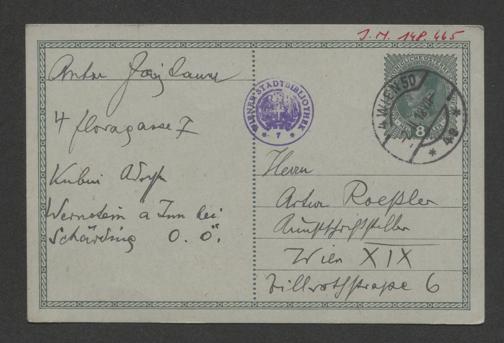 J. N. 148.465
Anton Josef
4 Floragasse 7
Kubin Adolf
Wernstein a Inn bei
Schärding O. Ö.
WIENER STADTBIBLIOTHEK
* 7 *
WIEN 50
8
Herrn
Artur Roeßler
Kunstschriftsteller
Wien XIX
Billrothstraße 6